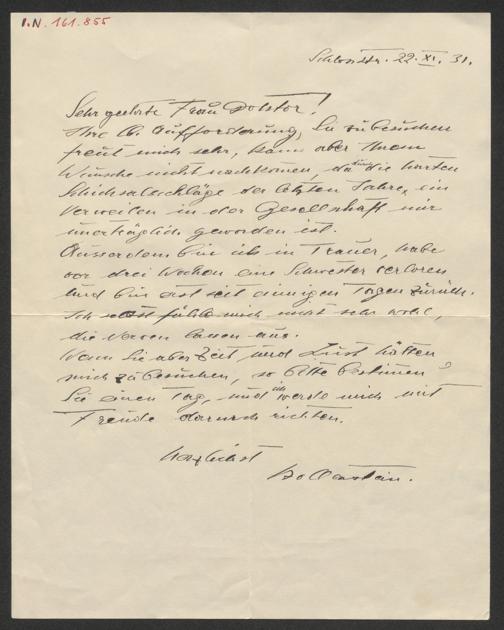 I.N. 161.855
Schlossstr. 22. XI. 31.
Sehr geehrte Frau Doktor!
Ihre lb. Aufforderung, Sie zu besuchen
freut mich sehr, kann aber Ihrem
Wunsche nicht nachkommen, da durch die harten
Schicksalschläge der letzten Jahre, ein
Verweilen in der Gesellschaft mir
unerträglich geworden ist.
Ausserdem bin ich in Trauer, habe
vor drei Wochen eine Schwester verloren
und bin erst seit einigen Tagen zurück.
Ich fühle mich nicht sehr wohl,
die Nerven lassen aus.
Wenn Sie aber Zeit und Lust hätten
mich zu besuchen, so bitte bestimmen
Sie einen Tag, und ich werde mich mit
Freude darnach richten.
Herzlichst